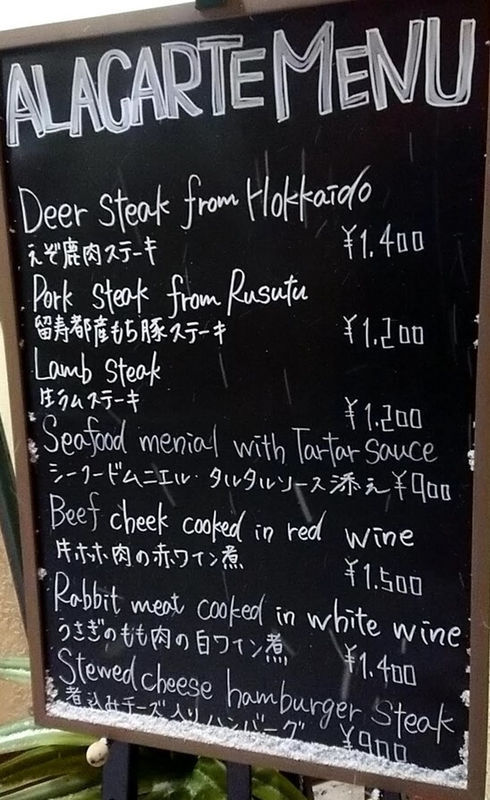 ALACARTE MENU
Deer Steak from Hokkaido
えぞ鹿肉ステーキ ¥1.400
Pork Steak from Rusutu
留寿都産もち豚ステーキ ¥1.200
Lamb Steak
生ラムステーキ ¥1.200
Seafood menial with Tartar Sauce
シーフードムニエル・タルタルソース添え ¥900
Beef cheek cooked in red wine
牛ホホ肉の赤ワイン煮 ¥1.500
Rabbit meat cooked in white wine
うさぎのもも肉の白ワイン煮 ¥1.400
Stewed cheese hamburger Steak
煮込みチーズ入りハンバーグ ¥900